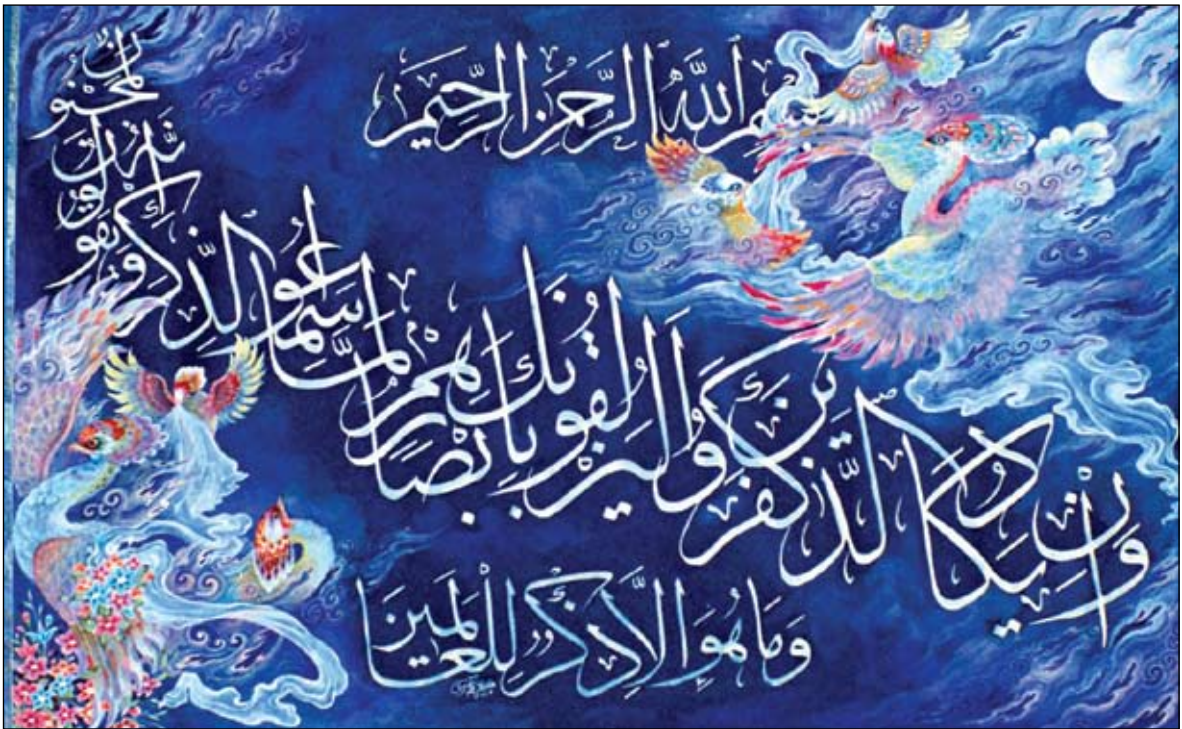 بِسْمِ اللَّهِ الرَّحْمَنِ الرَّحِيمِ
وَإِنْ يَكَادُ الَّذِينَ كَفَرُوا لَيُزْلِقُونَكَ بِأَبْصَارِهِمْ لَمَّا سَمِعُوا الذِّكْرَ وَيَقُولُونَ إِنَّهُ لَمَجْنُونٌ
وَمَا هُوَ إِلَّا ذِكْرٌ لِلْعَالَمِينَ